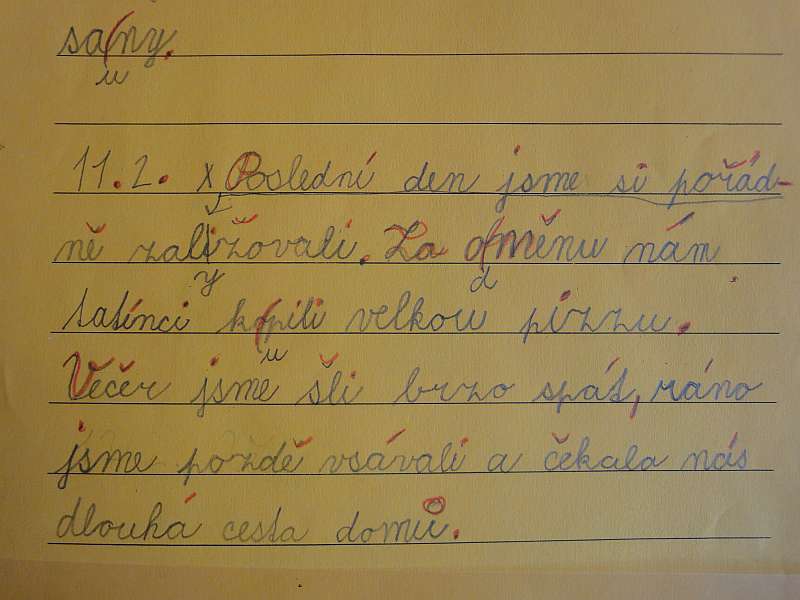 sany.
u
11.2. x Poslední den jsme si pořád-
ně zaližovali. Za oměnu nám
y d
tatínci kopili velkou pizzu.
u
Večer jsme šli brzo spát, ráno
jsme pozdě vsávali a čekala nás
dlouhá cesta domů.